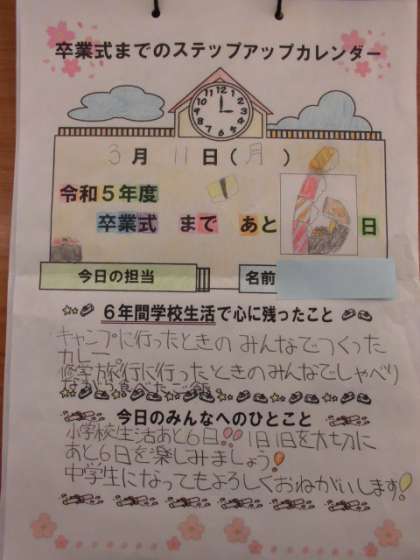 卒業式までのステップアップカレンダー
3月11日(月)
令和5年度
卒業式 まで あと 6 日
今日の担当
名前
6年間学校生活で心に残ったこと
キャンプに行ったときのみんなでつくった
カレー
修学旅行に行ったときのみんなでしゃべり
ながら食べたご飯
今日のみんなへのひとこと
小学校生活あと6日!!1日1日を大切に
あと6日を楽しみましょう!
中学生になってもよろしくおねがいします!